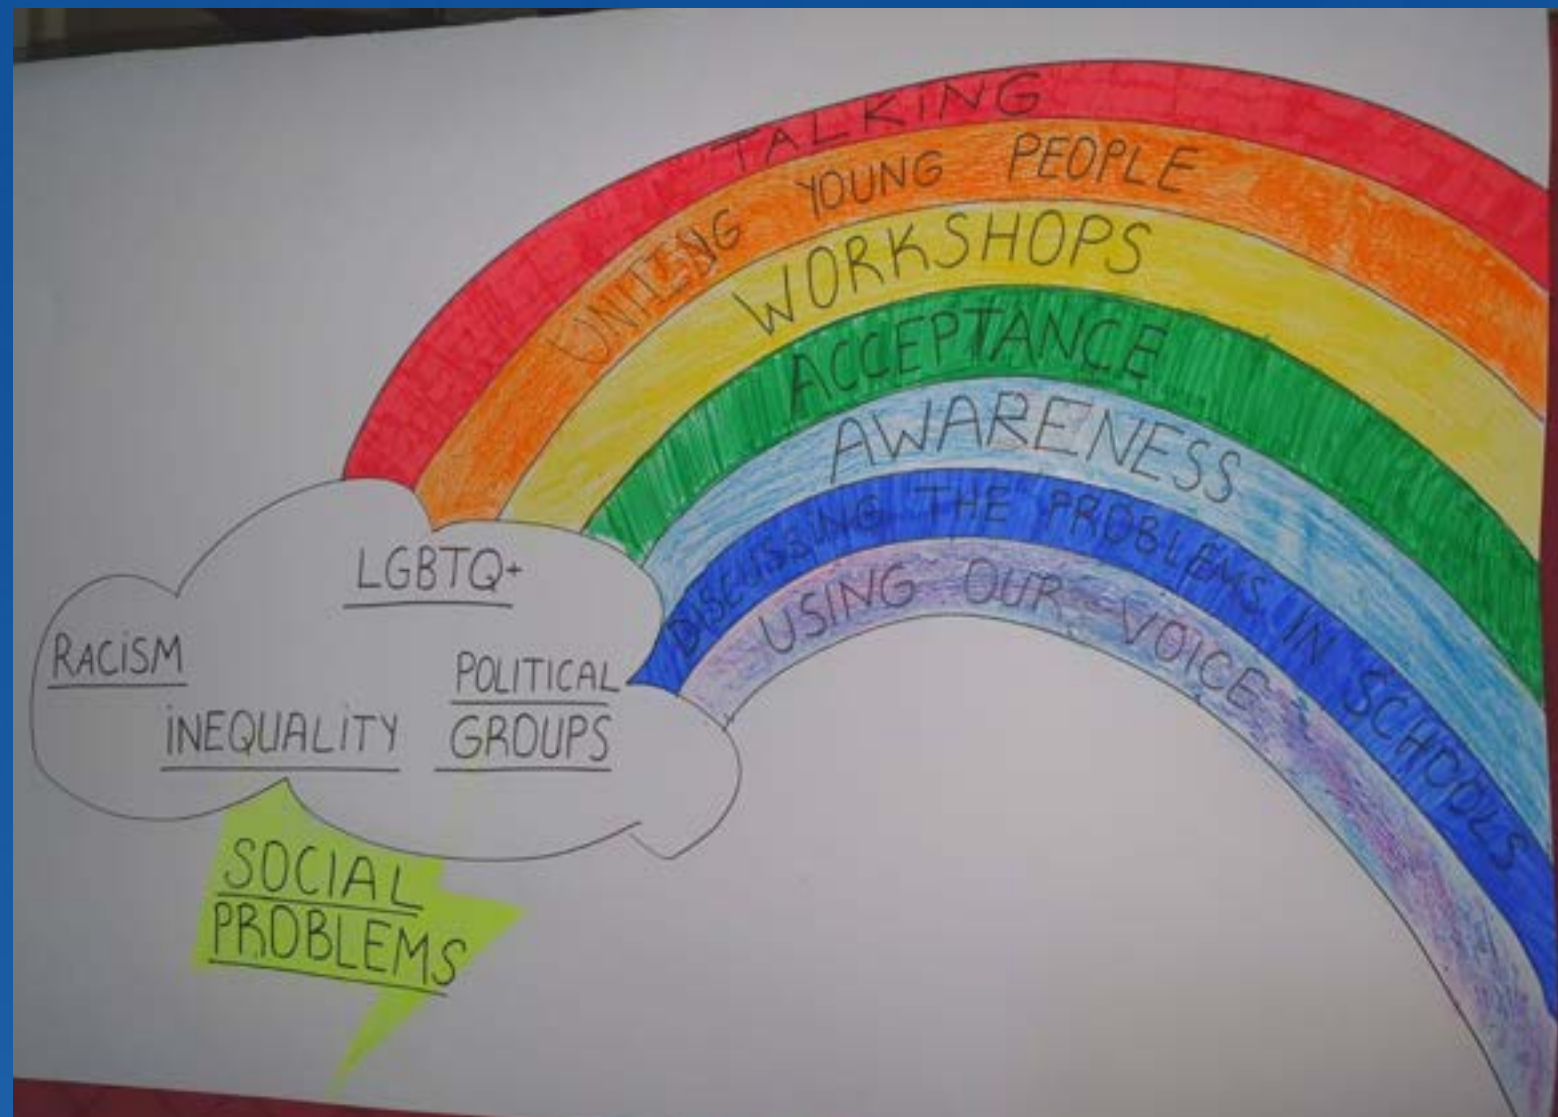 TALKING
UNITING YOUNG PEOPLE
WORKSHOPS
ACCEPTANCE
AWARENESS
DISCUSSING THE PROBLEMS IN SCHOOLS
USING OUR VOICE
LGBTQ+
RACiSM
POLITICAL
GROUPS
iNEQUALiTY
SOCIAL
PROBLEMS